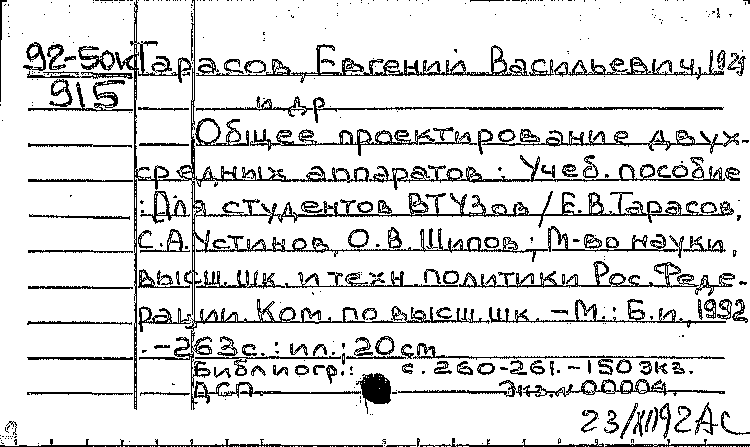 92-50к Тарасов, Евгений Васильевич, 1929
915 и др
Общее проектирование двух-
средных аппаратов : Учеб. пособие
: Для студентов ВТУЗов / Е.В.Тарасов,
С.А.Устинов, О.В.Шипов; М-во науки,
высш. шк. и техн политики Рос. Феде-
рации. Ком. по высш. шк. - М.: Б.и., 1992
. - 263с. : ил.; 20 cm
Библиогр.: с. 260-261. - 150 экз.
ДСП. Экз. № 00004.
23/XII 92 АС